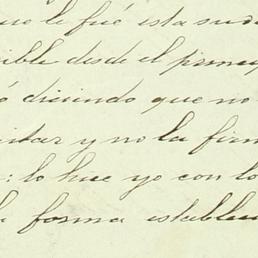 le fué esta su
ible desde el princi
ó diciendo que no
itar y no la firm
: lo hice yo con lo
la forma establec